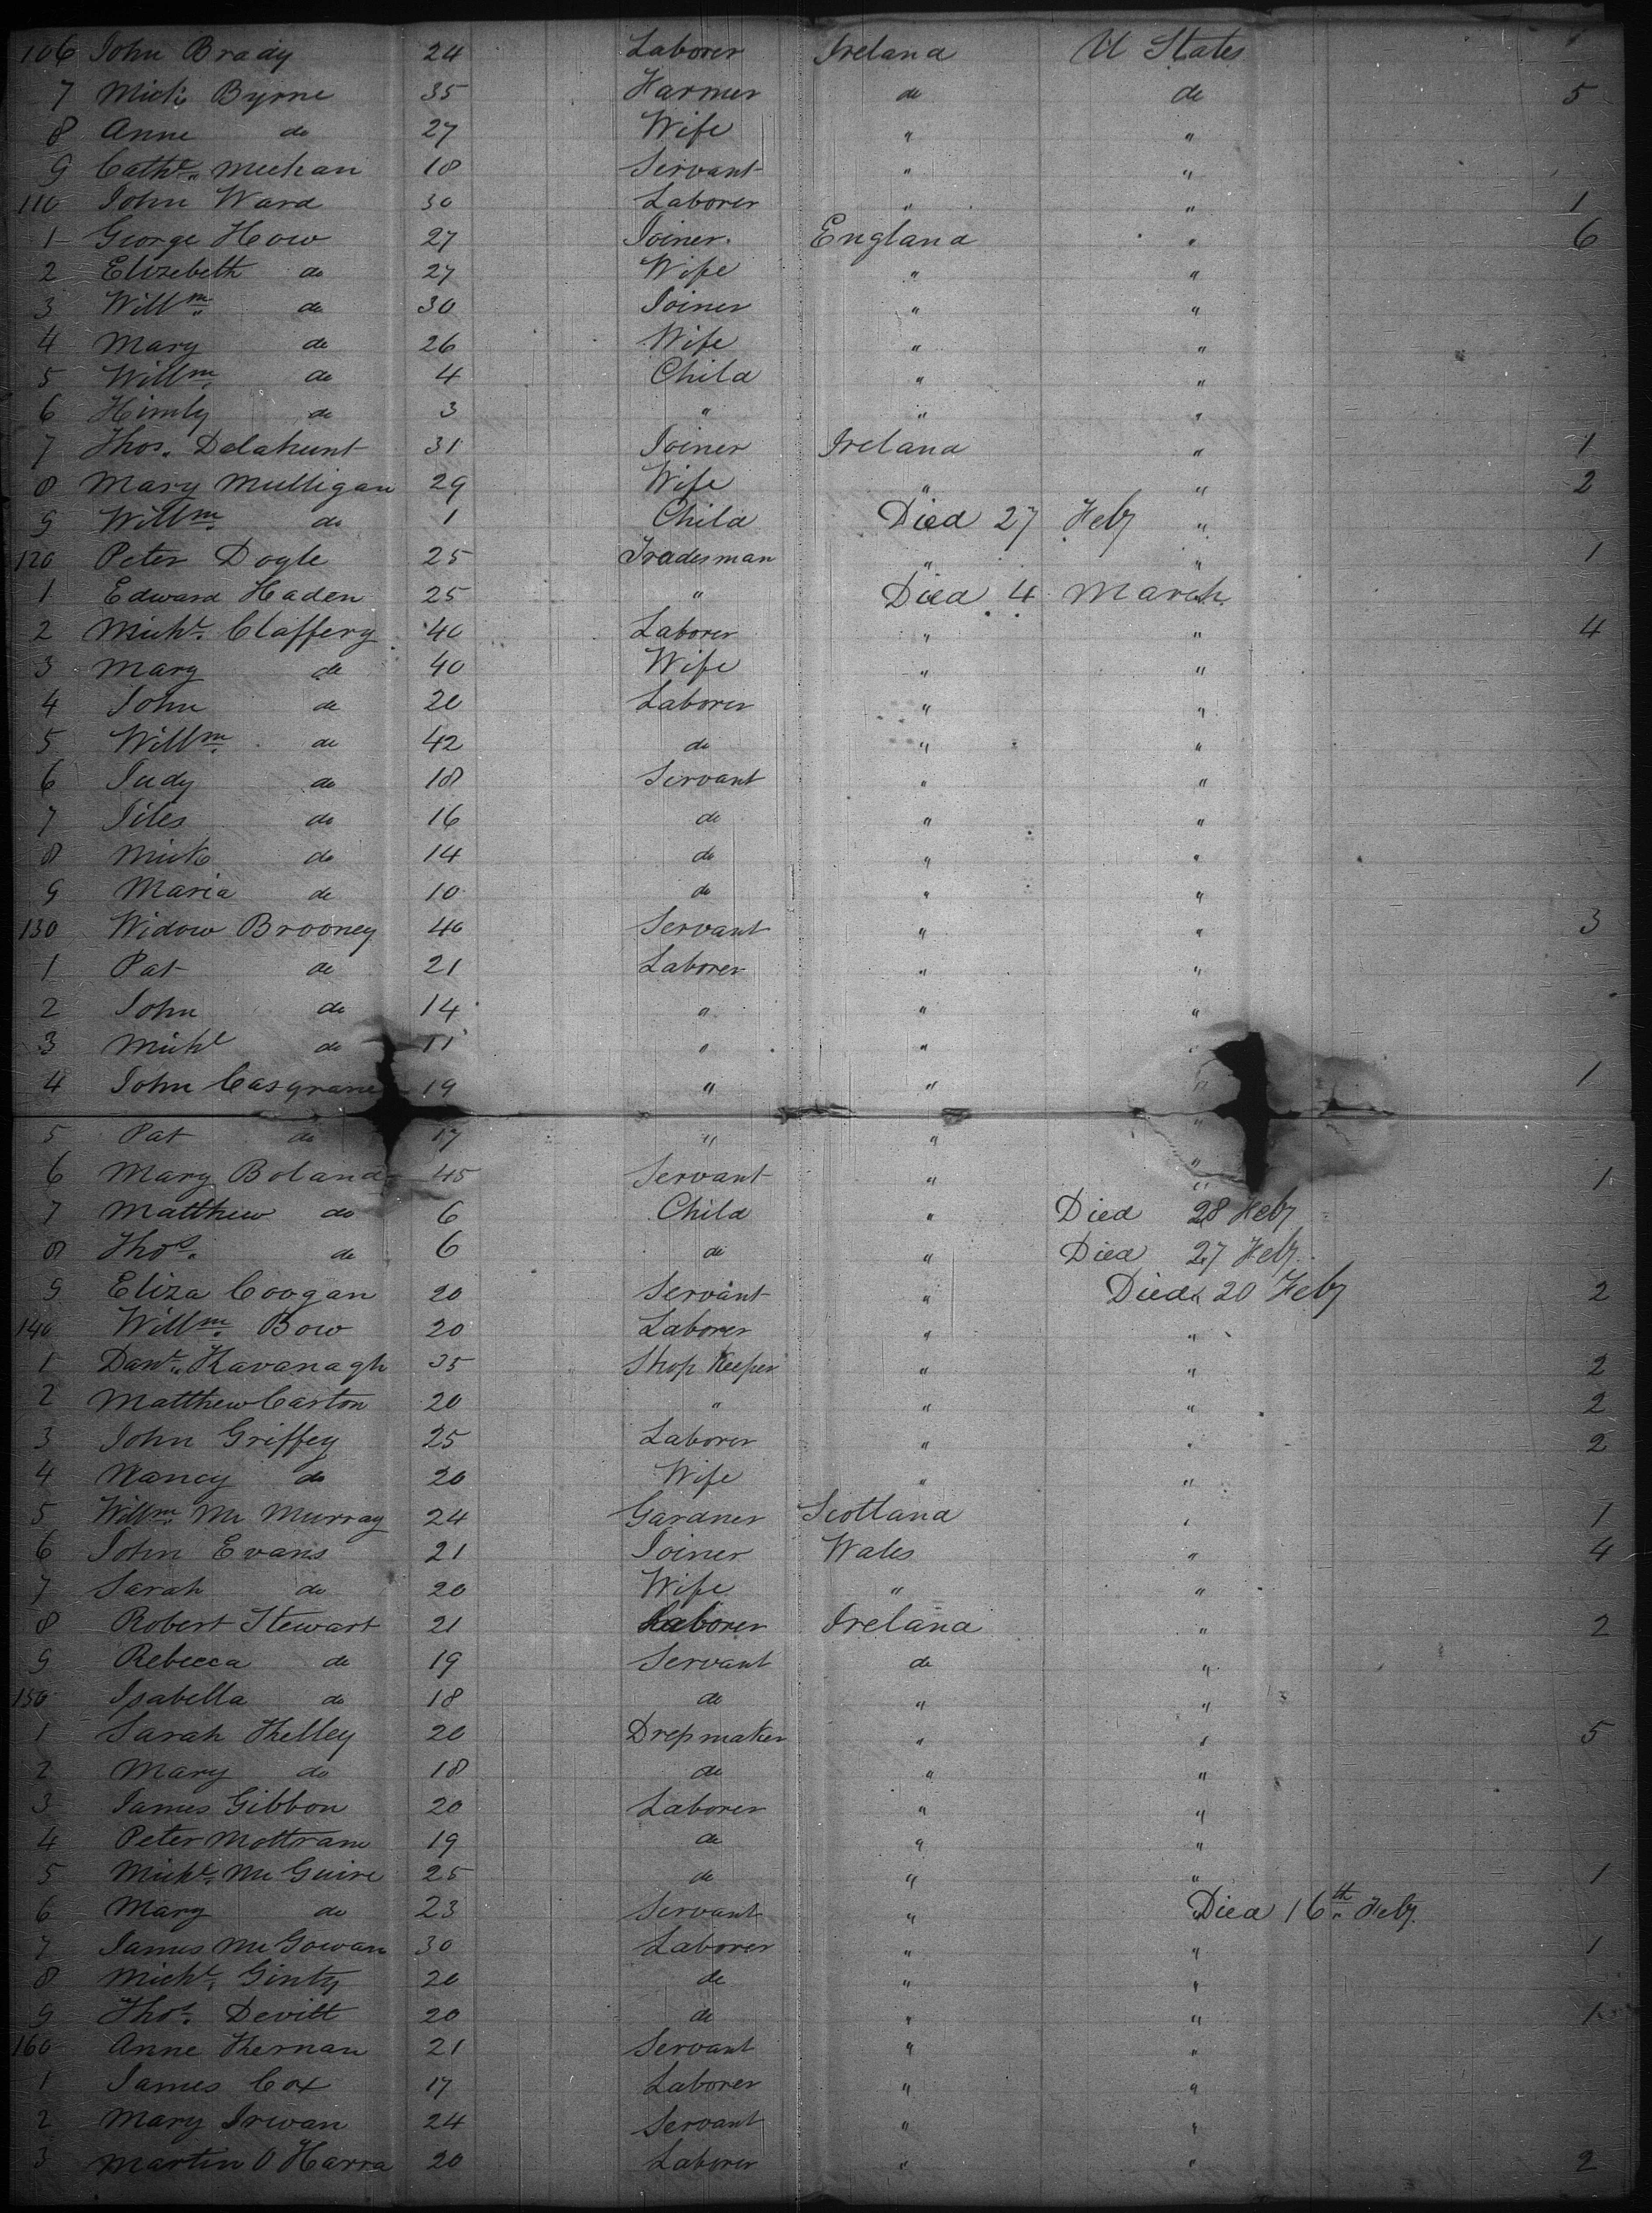 106 John Brady 24 Laborer Ireland U States
7 Mick Byrne 35 Farmer do do 5
8 Anne do 27 Wife " "
9 Cathe. Meehan 18 Servant " "
110 John Ward 30 Laborer " " 1
1 George How 27 Joiner England " 6
2 Elizebeth do 27 Wife " "
3 Willm. do 30 Joiner " "
4 Mary do 26 Wife " "
5 Willm. do 4 Child " "
6 do 3 " " "
7 Thos. Delahunt 31 Joiner Ireland " 1
8 Mary Mulligan 29 Wife " " 2
9 Willm. do 1 Child Died 27 Feby "
120 Peter Dogle 25 Tradesman " " 1
1 Edward Haden 25 " Died 4 March
2 Michl. Claffery 40 Laborer " " 4
3 Mary do 40 Wife " "
4 John do 20 Laborer " "
5 Willm. do 42 do " "
6 Judy do 18 Servant " "
7 Jiles do 16 do " "
8 Mick do 14 do " "
9 Maria do 10 do " "
130 Widow Brooney 40 Servant " " 3
1 Pat do 21 Laborer " "
2 John do 14 " " "
3 Michl do 11 " " "
4 John Casgrane 19 " " " 1
5 Pat do 17 " " "
6 Mary Boland 45 Servant " " 1
7 Matthew do 6 Child " Died 28 Feby
8 Thos. do 6 do " Died 27 Feby
9 Eliza Coogan 20 Servant " Died 20 Feby 2
140 Willm. Bow 20 Laborer " "
1 Danl. Kavanagh 35 Shop Keeper " " 2
2 Matthew Carton 20 " " " 2
3 John Griffey 25 Laborer " " 2
4 Nancy do 20 Wife " "
5 Willm. Mc Murray 24 Gardner Scotland " 1
6 John Evans 21 Joiner Wales " 4
7 Sarah do 20 Wife " "
8 Robert Stewart 21 Laborer Ireland " 2
9 Rebecca do 19 Servant do "
150 Isabella do 18 do " "
1 Sarah Kelley 20 Dressmaker " " 5
2 Mary do 18 do " "
3 James Gibbon 20 Laborer " "
4 Peter Mottram 19 do " "
5 Michl. Mc Guire 25 do " " 1
6 Mary do 23 Servant " Died 16th Feby.
7 James Mc Gowan 30 Laborer " " 1
8 Michl. Ginty 20 do " "
9 Thos. Devitt 20 do " " 1
160 Anne Kernan 21 Servant " "
1 James Cox 17 Laborer " "
2 Mary Irwan 24 Servant " "
3 Martin O Harra 20 Laborer " " 2